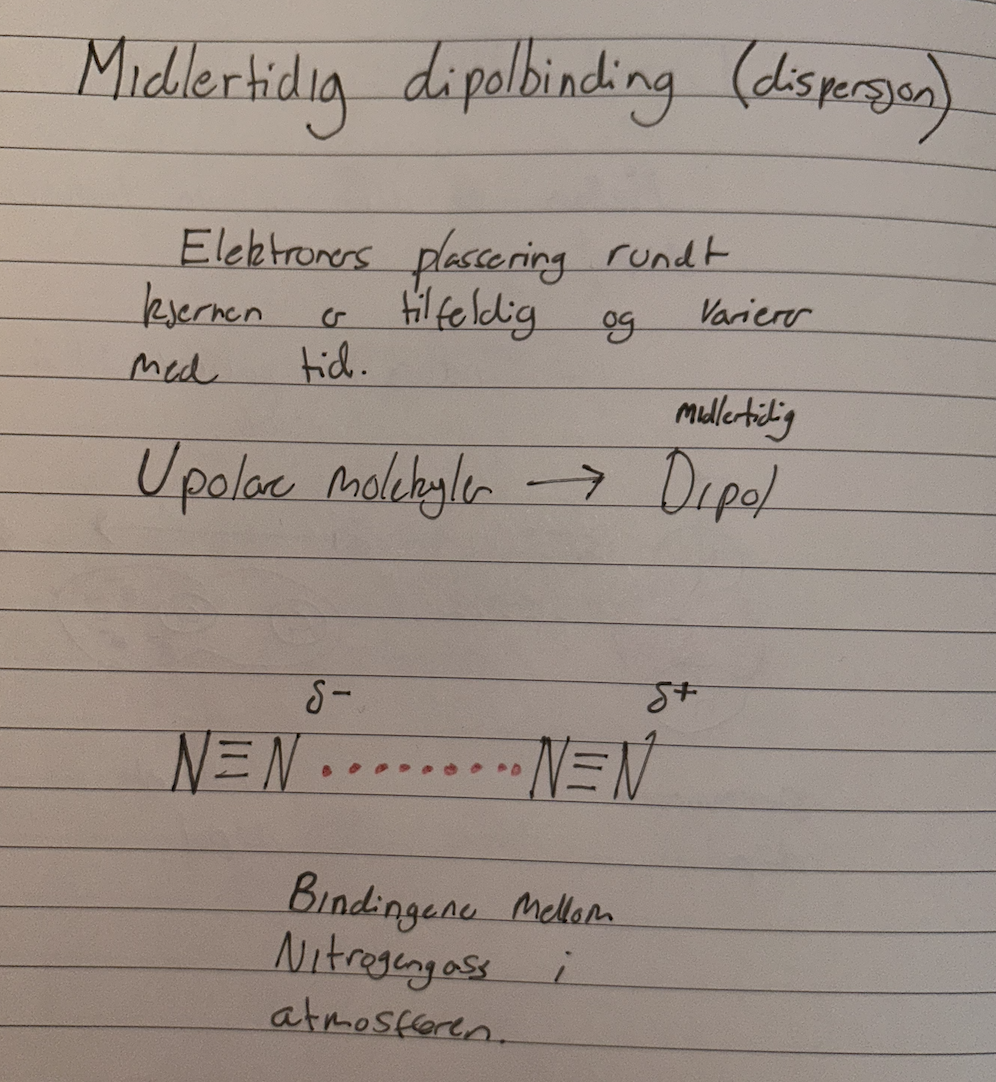 Midlertidig dipolbinding (dispersjon)
Elektroners plassering rundt
kjernen er tilfeldig og varierer
med tid.
midlertidig
Upolare molekyler → Dipol
δ- δ+
N≡N ......... N≡N
Bindingene mellom
Nitrogengass i
atmosfæren.